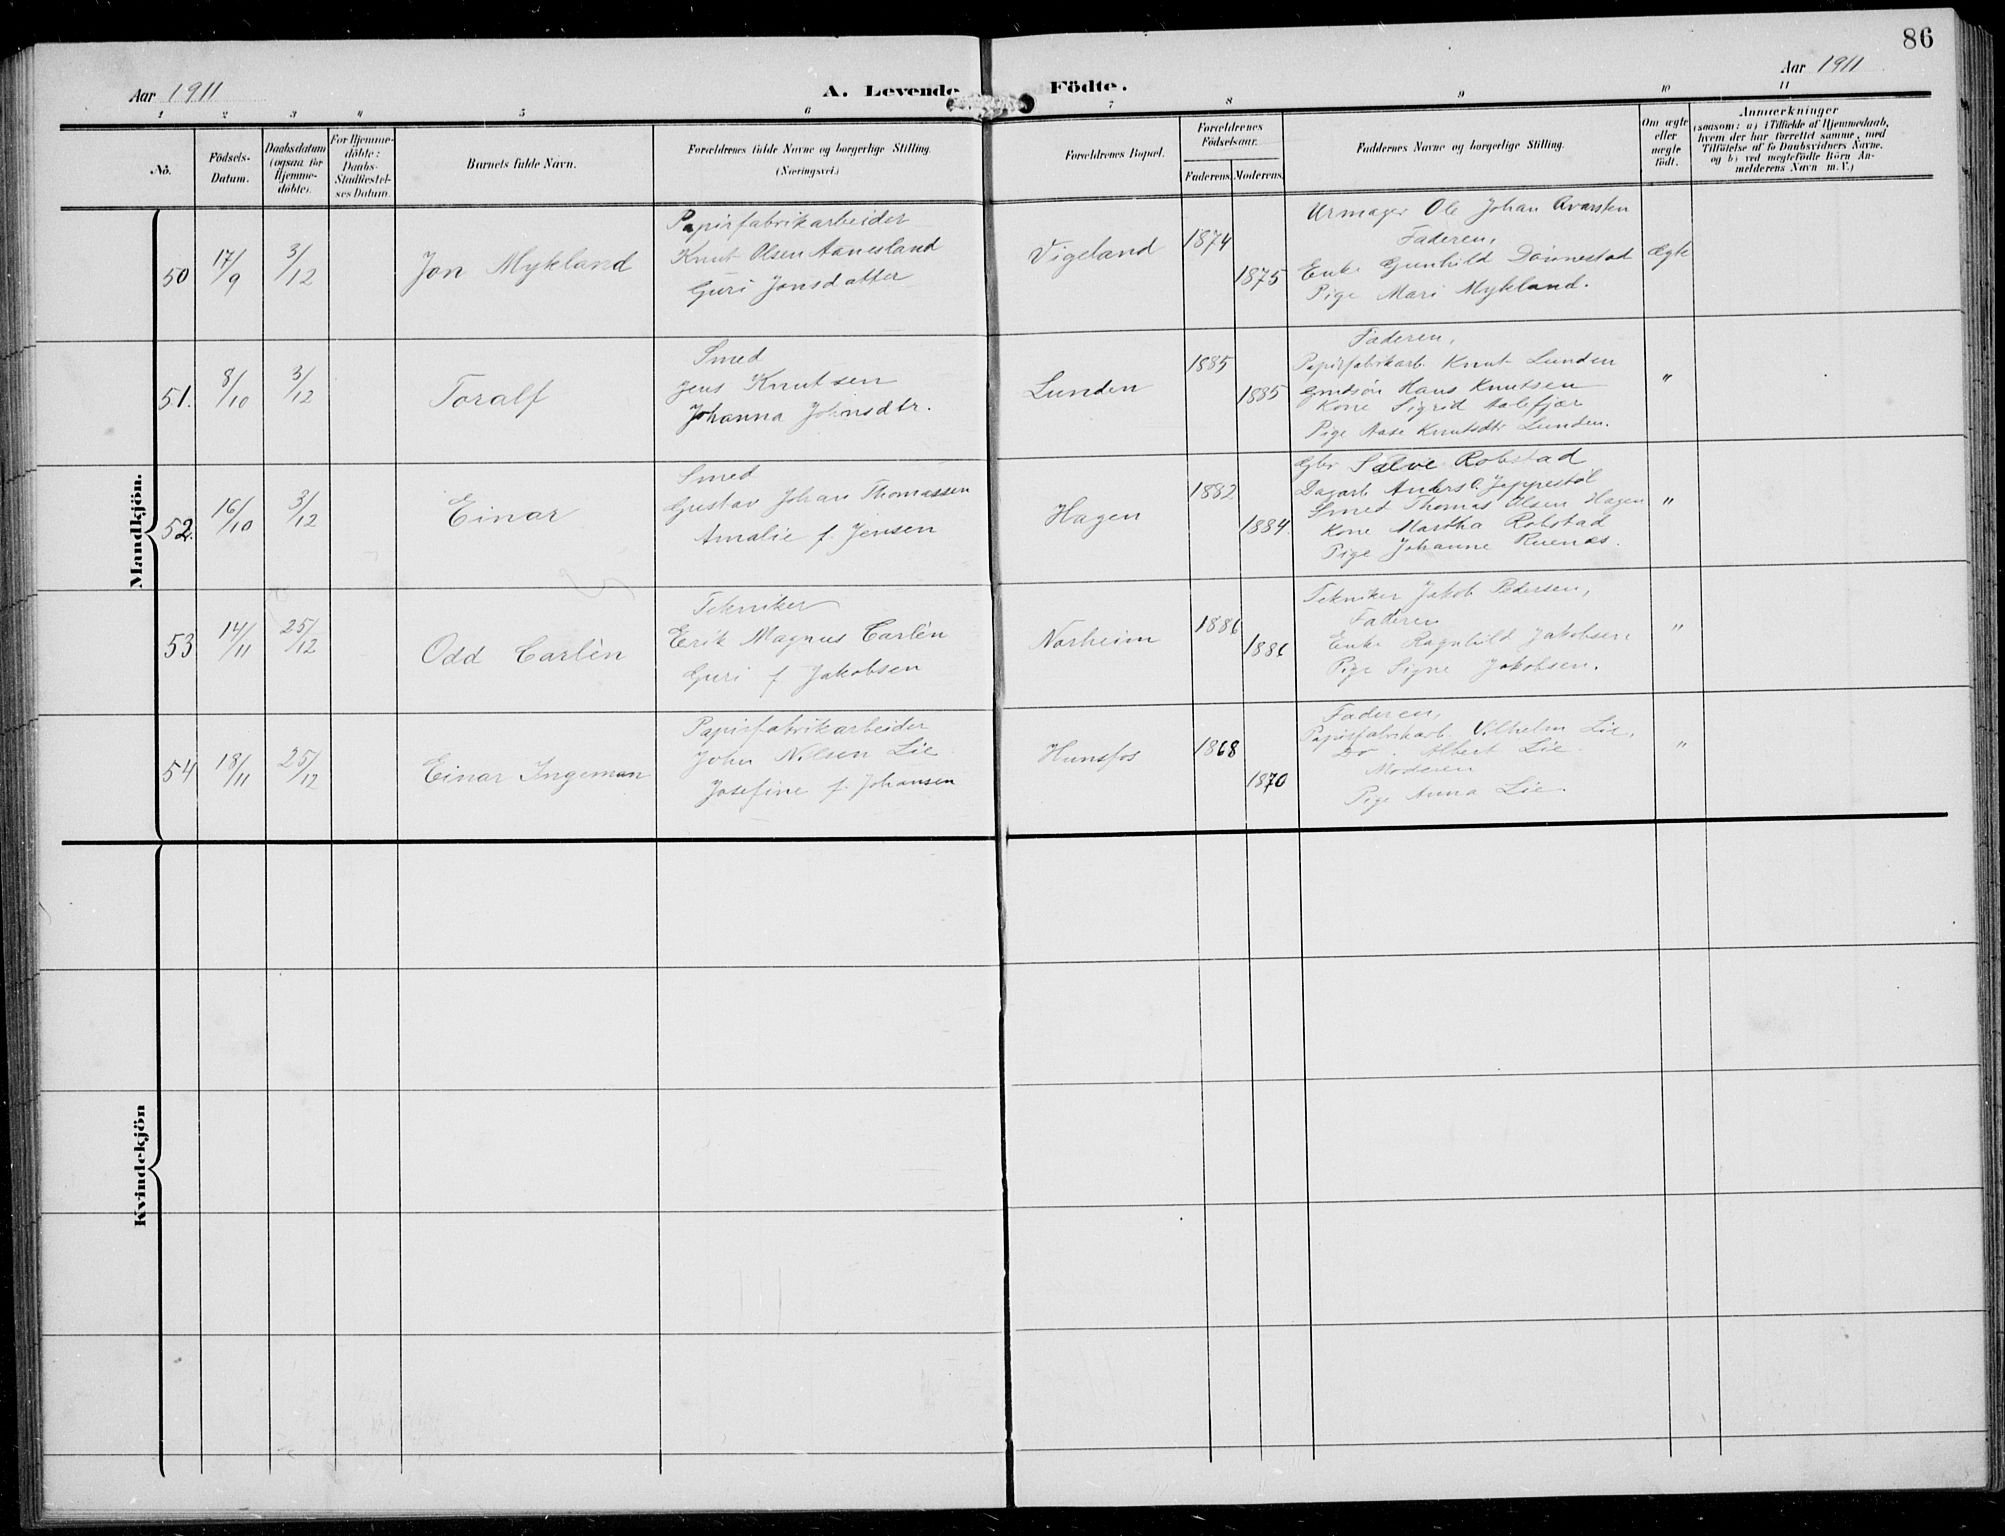 86
Aar 1911
A. Levende Födte.
Aar 1911
1 2 3 4 5 6 7 8 9 10 11
No.
Födsels-
Datum.
Daabsdatum
(ogsaa for
Hjemme-
döbte).
For Hjemme-
döbte:
Daabs-
Stadfæstel-
ses Datum.
Barnets fulde Navn.
Forældrenes fulde Navne og borgerlige Stilling.
(Næringsvei.)
Forældrenes Bopæl.
Forældrenes
Födselsaar.
Faderens Moderens
Faddernes Navne og borgerlige Stilling.
Om ægte
eller
uægte
födt.
Anmærkninger
(saasom: a) i Tilfælde af Hjemmedaab,
hvem der har forrettet samme, med
Tilföielse af to Daabsvidners Navne.
og b) ved uægtefödte Börn An-
melderens Navn m. V.)
Mandkjön.
50
17/9
3/12
Jon Mykland
Papirfabrikarbeider
Knut Olsen Aanesland
Guri Jonsdatter
Vigeland
1874
1875
Urmager Ole Johan
Faderen,
Enke Gunhild Dønnestad
Pige Mari Mykland.
Ægte
51.
8/10
3/12
Toralf
Smed
Jens Knutsen
Johanna Johnsdtr.
Lunden
1885
1885
Faderen,
Papirfabrikarb. Knut Lunden
Hans Knutsen
Kone Sigrid Aalefjær
Pige Aase Knutsdtr Lunden.
"
52.
16/10
3/12
Einar
Smed
Gustav Johan Thomassen
Amalie f. Jensen
Hagen
1882
1884.
Gbr Salve Robstad
Dagarb Anders O. Jeppestøl
Smed Thomas Olsen Hagen
Kone Martha Robstad
Pige Johanne
"
53
14/11
25/12
Odd Carlèn
Tekniker
Erik Magnus Carlèn
Guri f Jakobsen
Norheim
1886
1886
Tekniker Jakob Pedersen,
Faderen
Enke Ragnhild Jakobsen
Pige Signe Jakobsen.
"
54
18/11
25/12
Einar Ingeman
Papirfabrikarbeider
John Nilsen Lie
Josefine f. Johansen
Hunsfos
1868
1870
Faderen,
Papirfabrikarb. Vilhelm Lie,
Do. Albert Lie.
Moderen
Pige Anna Lie.
"
Kvindekjön